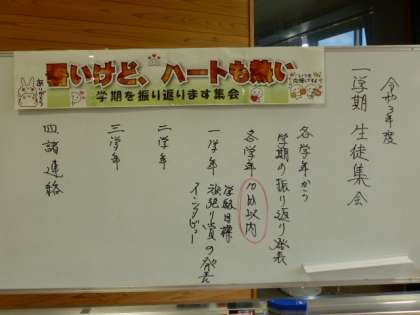 暑いけど、ハートも熱い
学期を振り返ります集会
ありがとう
令和3年度
一学期 生徒集会
各学年から
学期の振り返り発表
各学年 10分以内
一学年
学級目標
振り返り
の発表
インタビュー
二学年
三学年
四 諸連絡